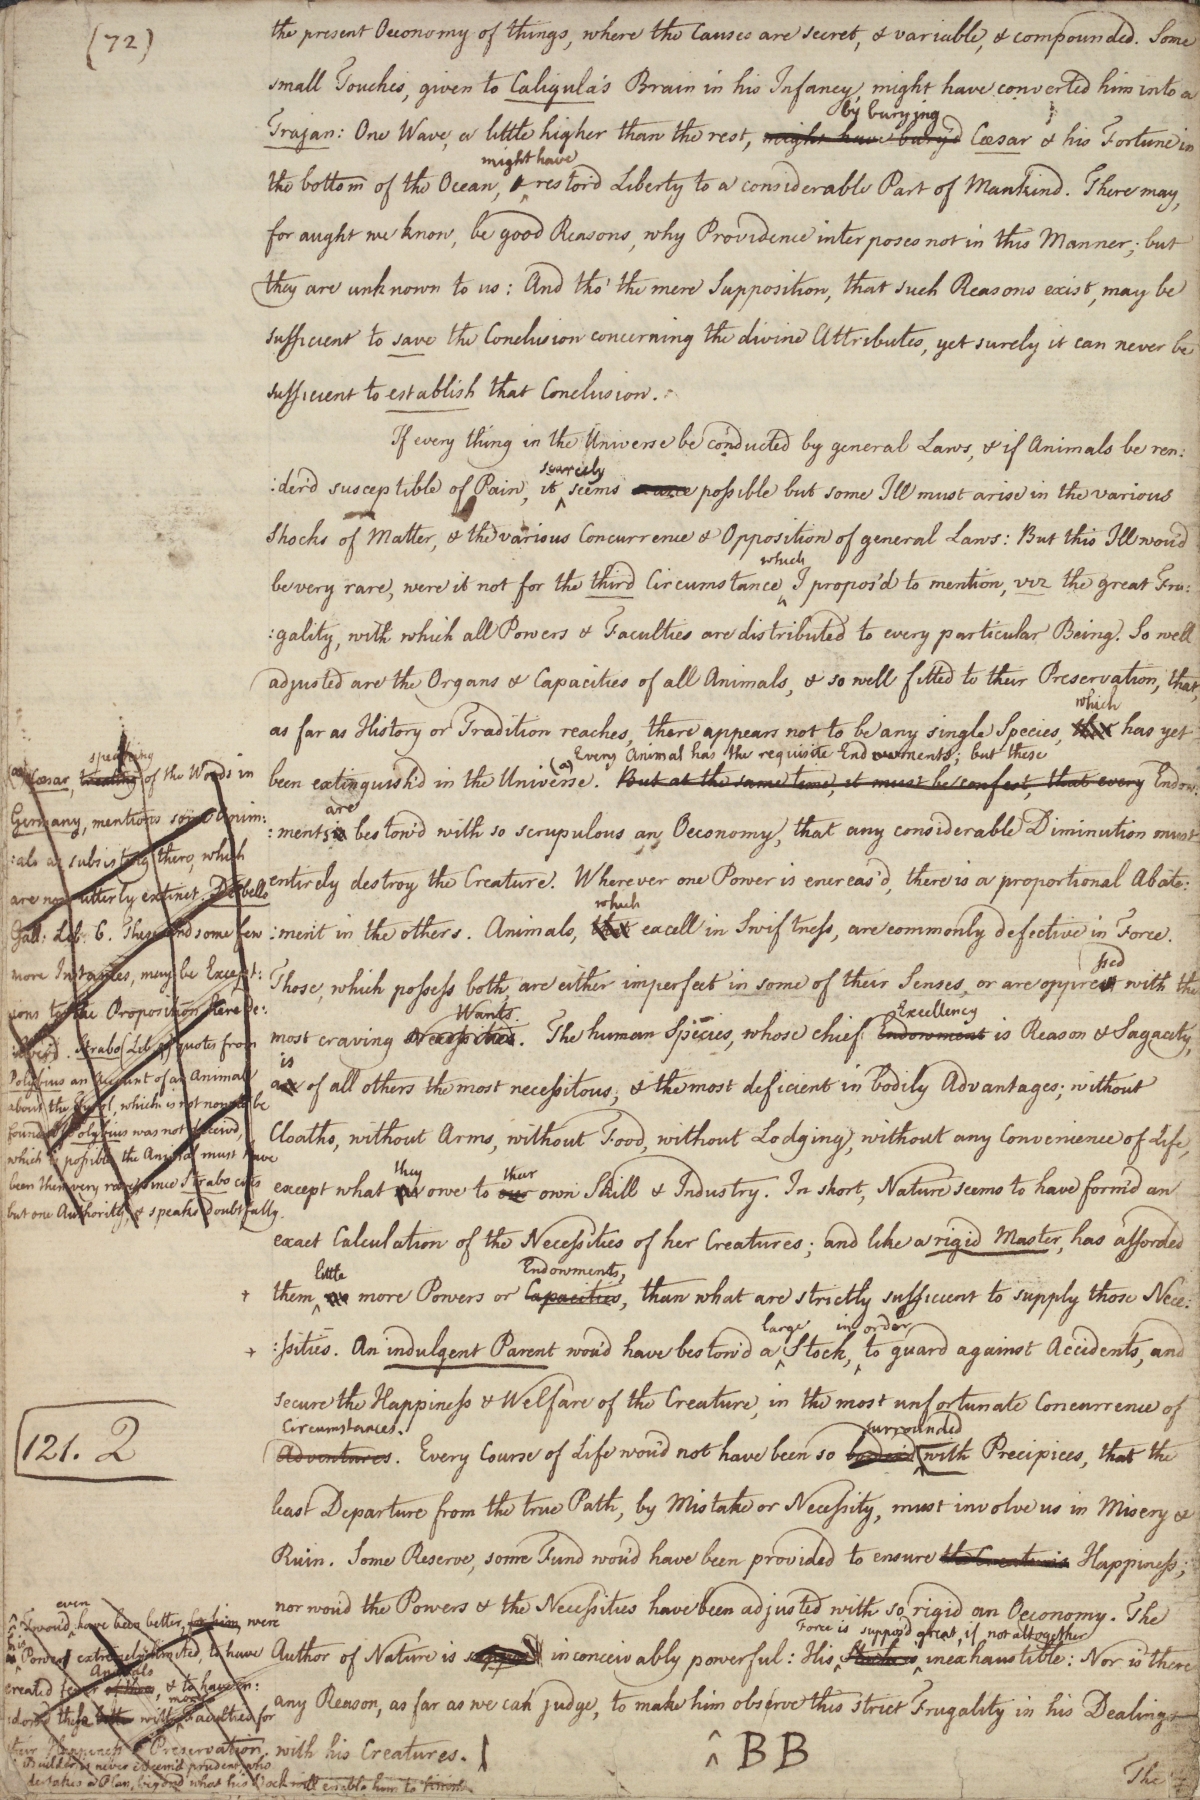 (72)
the present Oeconomy of things, where the Causes are secret, & variable, & compounded. Some
small Touches, given to Caligula's Brain in his Infancy, might have converted him into a
by burying
Trajan: One Wave, a little higher than the rest, might have bury'd Cæsar & his Fortune in
might have
the bottom of the Ocean, restor'd Liberty to a considerable Part of Mankind. There may,
for aught we know, be good Reasons, why Providence interposes not in this Manner; but
they are unknown to us: And tho' the mere Supposition, that such Reasons exist, may be
sufficient to save the Conclusion concerning the divine Attributes, yet surely it can never be
sufficient to establish that Conclusion.
If every thing in the Universe be conducted by general Laws, & if Animals be ren:
scarcely
:der'd susceptible of Pain, it seems scarce possible but some Ill must arise in the various
Shocks of Matter, & the various Concurrence & Opposition of general Laws: But this Ill wou'd
which
be very rare, were it not for the third Circumstance I propos'd to mention, viz the great Fru:
:gality, with which all Powers & Faculties are distributed to every particular Being. So well
adjusted are the Organs & Capacities of all Animals, & so well fitted to their Preservation, that,
which
as far as History or Tradition reaches, there appears not to be any single Species, that has yet
(a) Every Animal has the requisite Endowments; but these
been extinguish'd in the Universe. But at the same time, it must be confest, that every Endow:
are
:ments is bestow'd with so scrupulous an Oeconomy, that any considerable Diminution must
entirely destroy the Creature. Wherever one Power is encreas'd, there is a proportional Abate:
which
:ment in the others. Animals, that excell in Swiftness, are commonly defective in Force.
ssed
Those, which possess both, are either imperfect in some of their Senses, or are oppre with the
Wants. Excellency
most craving Necessities. The human Species, whose chief Endowment is Reason & Sagacity,
is
are of all others the most necessitous, & the most deficient in bodily Advantages; without
Cloaths, without Arms, without Food, without Lodging, without any Convenience of Life,
they their
except what we owe to our own Skill & Industry. In short, Nature seems to have form'd an
exact Calculation of the Necessities of her Creatures; and like a rigid Master, has afforded
little Endowments,
them no more Powers or Capacities, than what are strictly sufficient to supply those Nece:
large in order
:ssities. An indulgent Parent wou'd have bestow'd a Stock, to guard against Accidents, and
secure the Happiness & Welfare of the Creature, in the most unfortunate Concurrence of
Circumstances. surrounded
Adventures. Every Course of Life wou'd not have been so with Precipices, that the
least Departure from the true Path, by Mistake or Necessity, must involve us in Misery &
Ruin. Some Reserve, some Fund wou'd have been provided to ensure Happiness;
nor wou'd the Powers & the Necessities have been adjusted with so rigid an Oeconomy. The
Force is suppos'd great, if not altogether
Author of Nature is inconceivably powerful: His inexhaustible: Nor is there
any Reason, as far as we can judge, to make him observe this strict Frugality in his Dealings
with his Creatures. ^ BB
The
speaking
(a) Cæsar, treating of the Woods in
Germany, mentions some Anim:
:als as subsisting there, which
are now utterly extinct. De bello
Gall: Lib: 6. These and some few
more Instances, may be Except:
ions to the Proposition here de:
. Strabo (Lib. quotes from
Polybius an Account of an Animal
about the Tyrol, which is not now to be
found. If Polybius was not deceiv'd,
which is possible, the Animal must have
been then very rare, since Strabo cites
but one Authority, & speaks doubtfully.
121. 2
even
It wou'd have been better, for him, were
his
Power extremely limited, to have
Animals
created fewer of them, & to have en:
more
:dow'd these with Faculties for
their Happiness & Preservation.
Builder is never esteem'd prudent, who
undertakes a Plan, beyond what his Stock will enable him to finish.